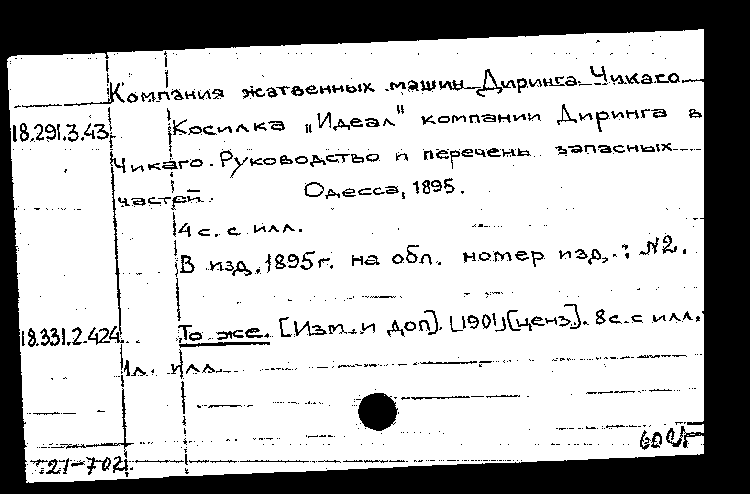 Компания жатвенных машин Диринга. Чикаго
18.291.3.43 Косилка „Идеал" компании Диринга в
Чикаго. Руководство и перечень запасных
частей. Одесса, 1895.
4 с. с илл.
В изд. 1895 г. на обл. номер изд.: №2.
18.331.2.424 То же. [Изм. и доп]. [1901, [ценз]. 8 с. с илл.
1л. илл.
21-702